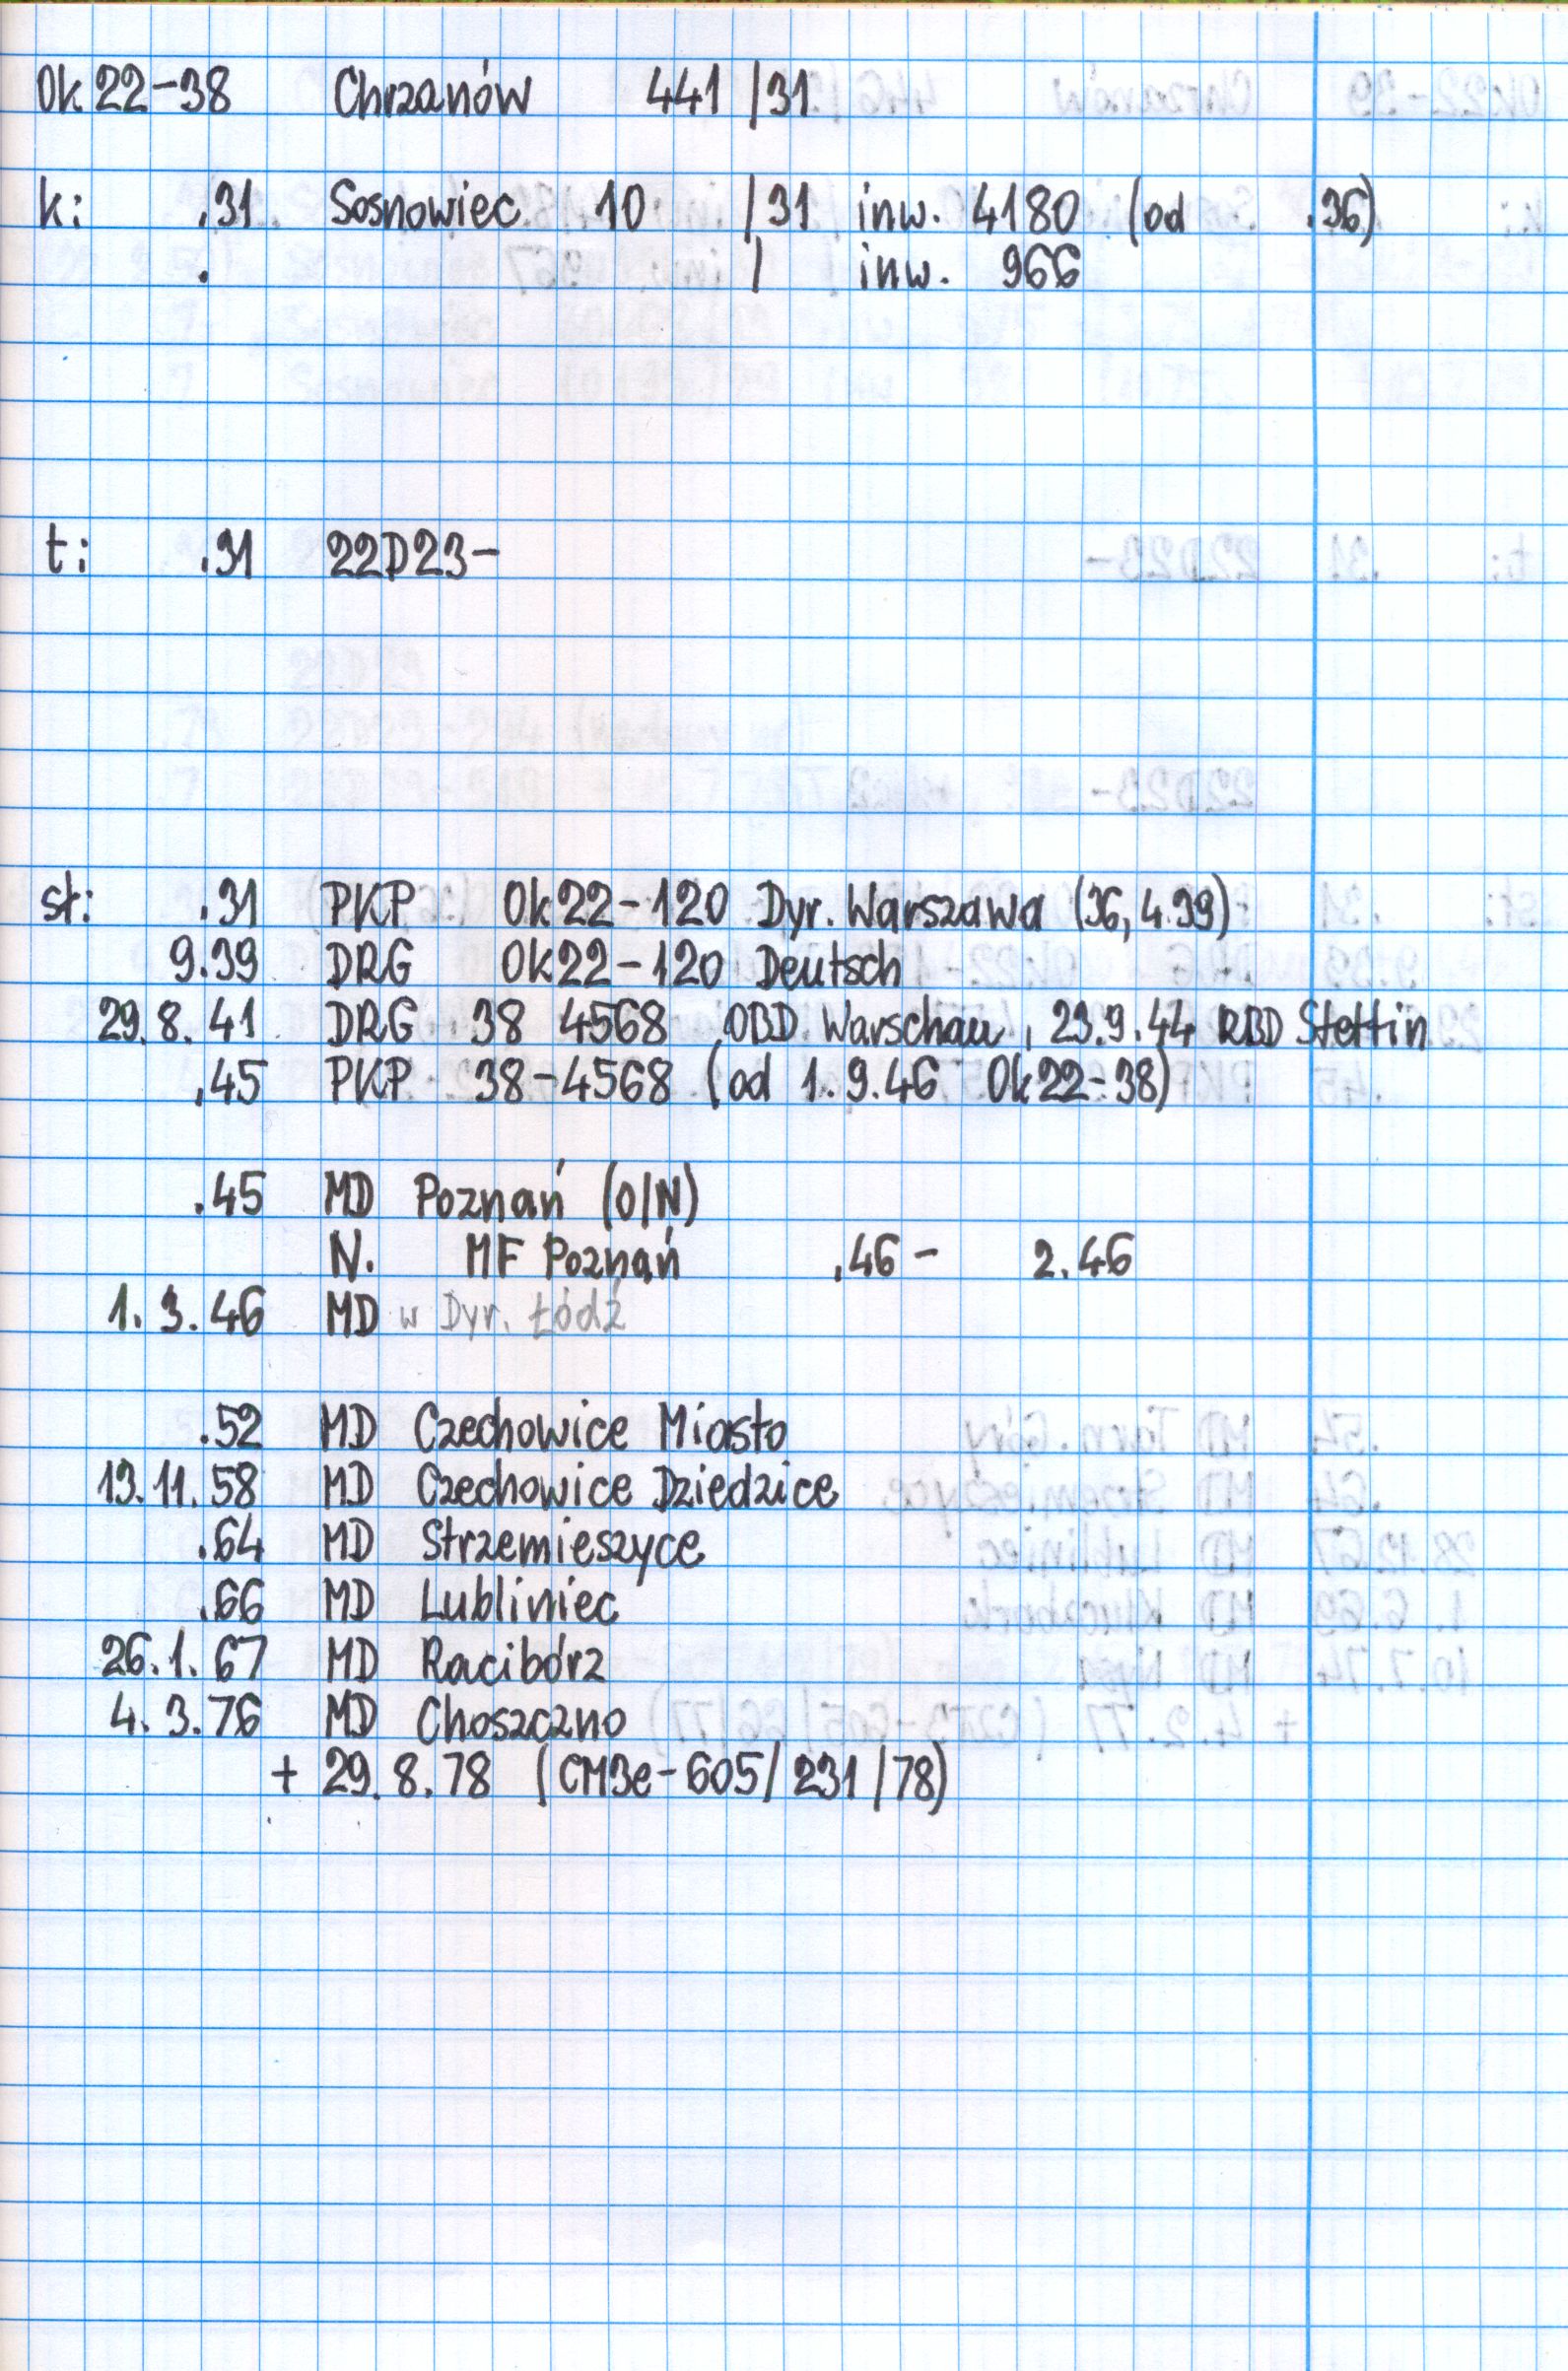 Ok22-38 Chrzanów 441 /31
k: .31 Sosnowiec 10 /31 inw. 4180 (od .36)
. / inw. 966
t: .31 22D23-
st: .31 PKP Ok22-120 Dyr. Warszawa (36, 4.39)
9.39 DRG Ok22-120 Deutsch
29.8.41 DRG 38 4568 OBD Warschau, 23.9.44 RBD Stettin
.45 PKP 38-4568 (od 1.9.46 Ok22-38)
.45 MD Poznań (O/N)
N. MF Poznań .46 - 2.46
1.3.46 MD w Dyr. Łódź
.52 MD Czechowice Miasto
13.11.58 MD Czechowice Dziedzice
.64 MD Strzemieszyce
.66 MD Lubliniec
26.1.67 MD Racibórz
4.3.76 MD Choszczno
+ 29.8.78 (CM3e-605/231/78)